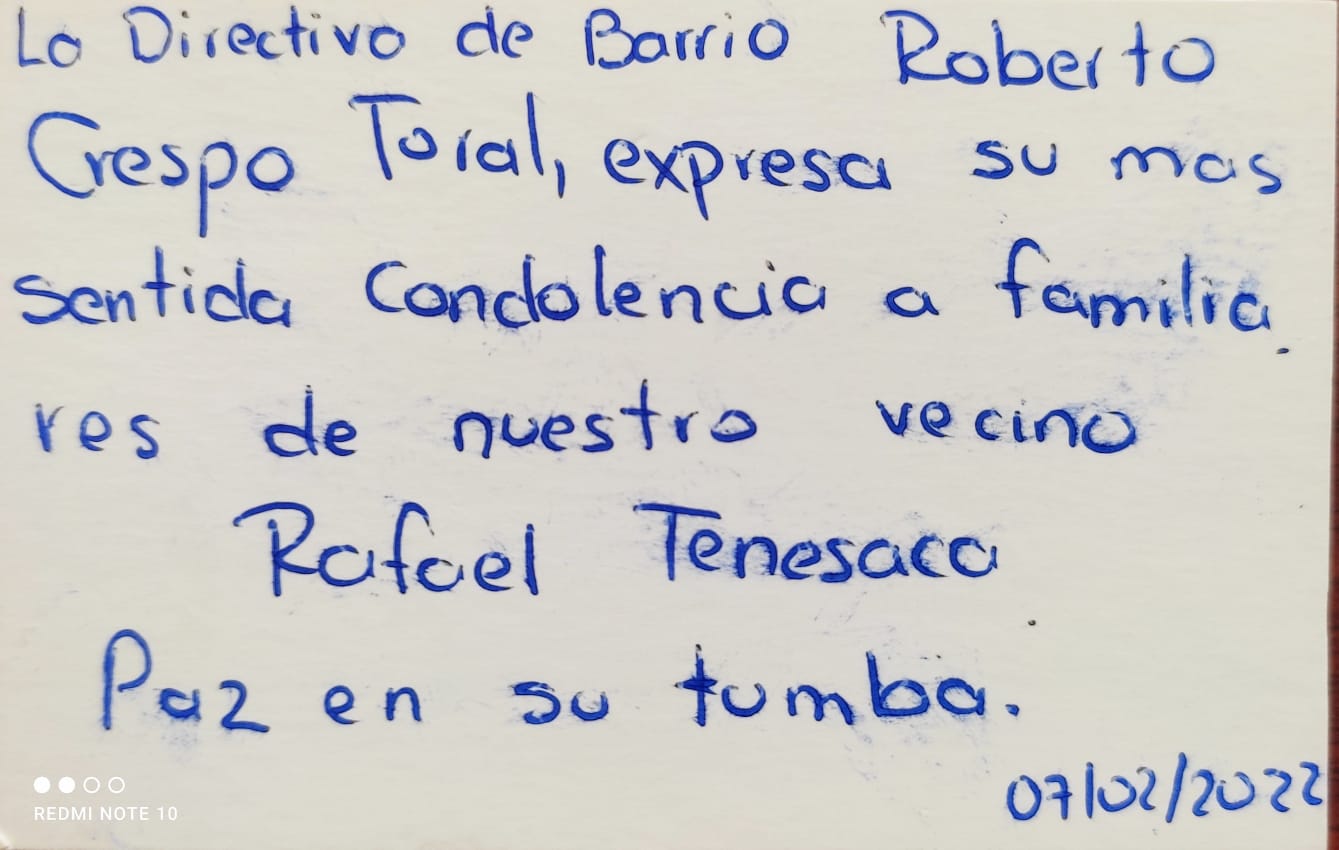 La Directiva de Barrio Roberto
Crespo Toral, expresa su mas
sentida Condolencia a familia
res de nuestro vecino
Rafael Tenesaca
Paz en su tumba.
07/02/2022
REDMI NOTE 10